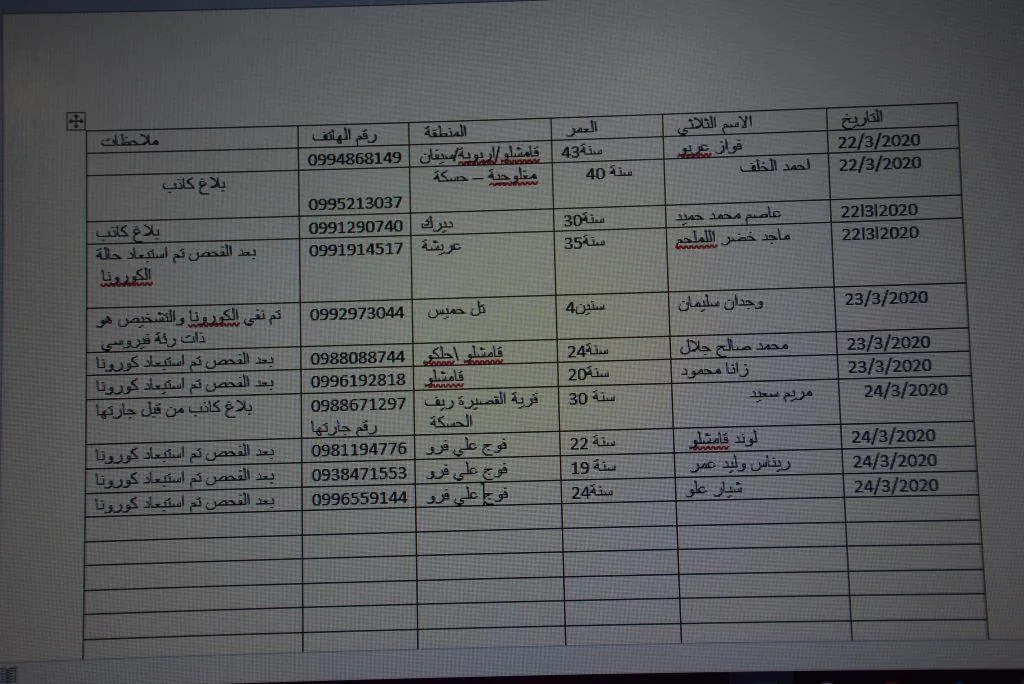 التاريخ الاسم الثلاثي العمر المنطقة رقم الهاتف ملاحظات
22/3/2020 فواز عربو 43سنة قامشلو/اربوية/سيقان 0994868149
22/3/2020 احمد الخلف 40 سنة مغلوجية – حسكة 0995213037 بلاغ كاذب
22\3\2020 عاصم محمد حميد 30سنة ديرك 0991290740 بلاغ كاذب
22\3\2020 ماجد خضر الملحم 35سنة عريشة 0991914517 بعد الفحص تم استبعاد حالة
الكورونا
23/3/2020 وجدان سليمان 4سنين تل حميس 0992973044 تم نفي الكورونا والتشخيص هو
ذات رئة فيروسي
23/3/2020 محمد صالح جلال 24سنة قامشلو \حلكو 0988088744 بعد الفحص تم استبعاد كورونا
23/3/2020 زانا محمود 20سنة قامشلو 0996192818 بعد الفحص تم استبعاد كورونا
24/3/2020 مريم سعيد 30 سنة قرية القصيرة ريف 0988671297 بلاغ كاذب من قبل جارتها
الحسكة رقم جارتها
24/3/2020 لوند قامشلو 22 سنة فوج علي فرو 0981194776 بعد الفحص تم استبعاد كورونا
24/3/2020 ريناس وليد عمر 19 سنة فوج علي فرو 0938471553 بعد الفحص تم استبعاد كورونا
24/3/2020 شيار علو 24سنة فوج علي فرو 0996559144 بعد الفحص تم استبعاد كورونا